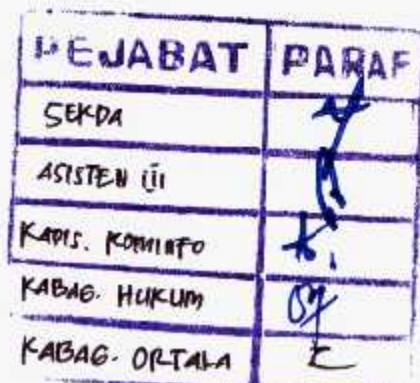 PEJABAT PARAF
SEKDA
ASISTEN III
KADIS. KOMINFO
KABAG. HUKUM
KABAG. ORTALA